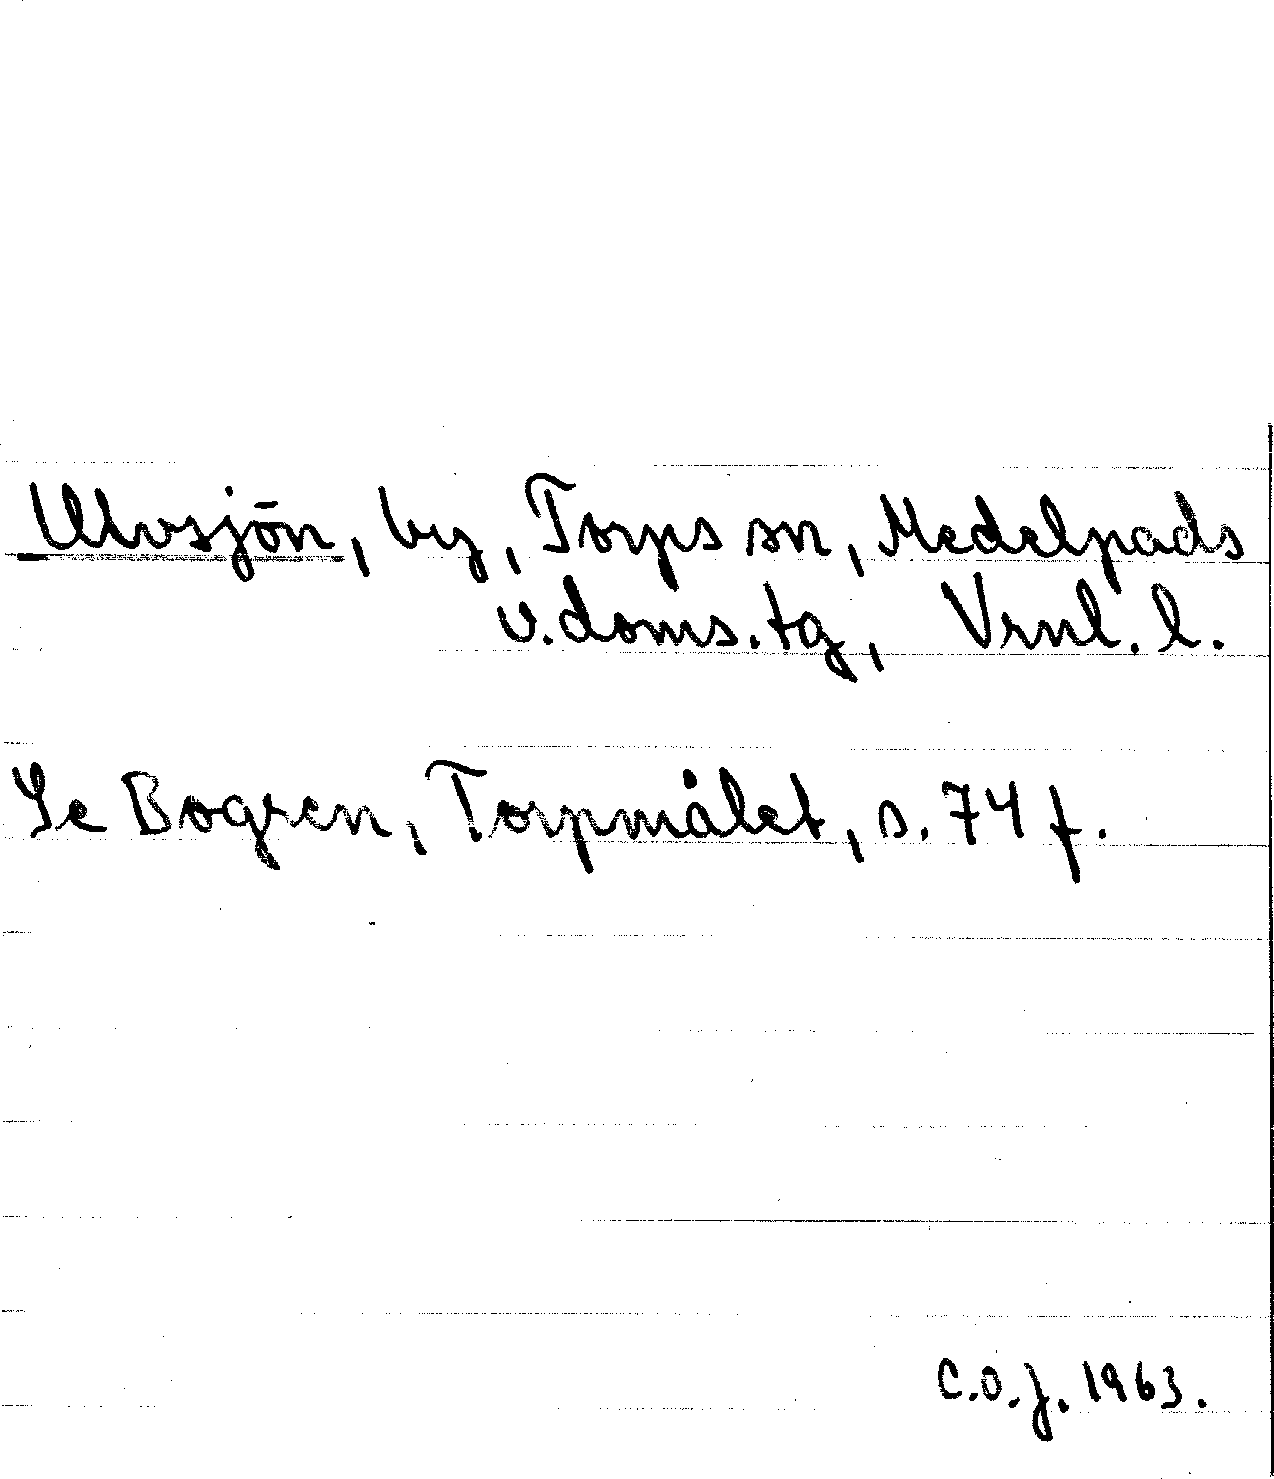 Ulvsjön, by, Torps sn, Medelpads
v. doms. tg, Vrnl. l.
Se Bogren, Torpmålet, s. 74 f.
C.O.J. 1963.